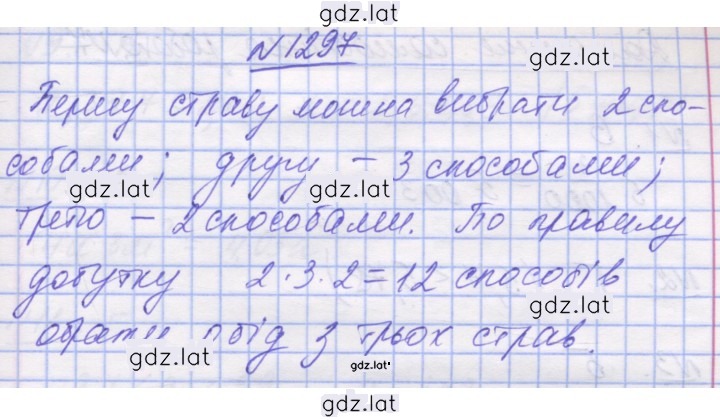 gdz.lat
N1297
gdz.lat
Першу страву можна вибрати 2 спо-
собами; другу - 3 способами;
gdz.lat gdz.lat
третю - 2 способами. По правилу
добутку 2·3·2=12 способів
gdz.lat
обрати обід з трьох страв.
gdz.lat gdz.lat
gdz.lat